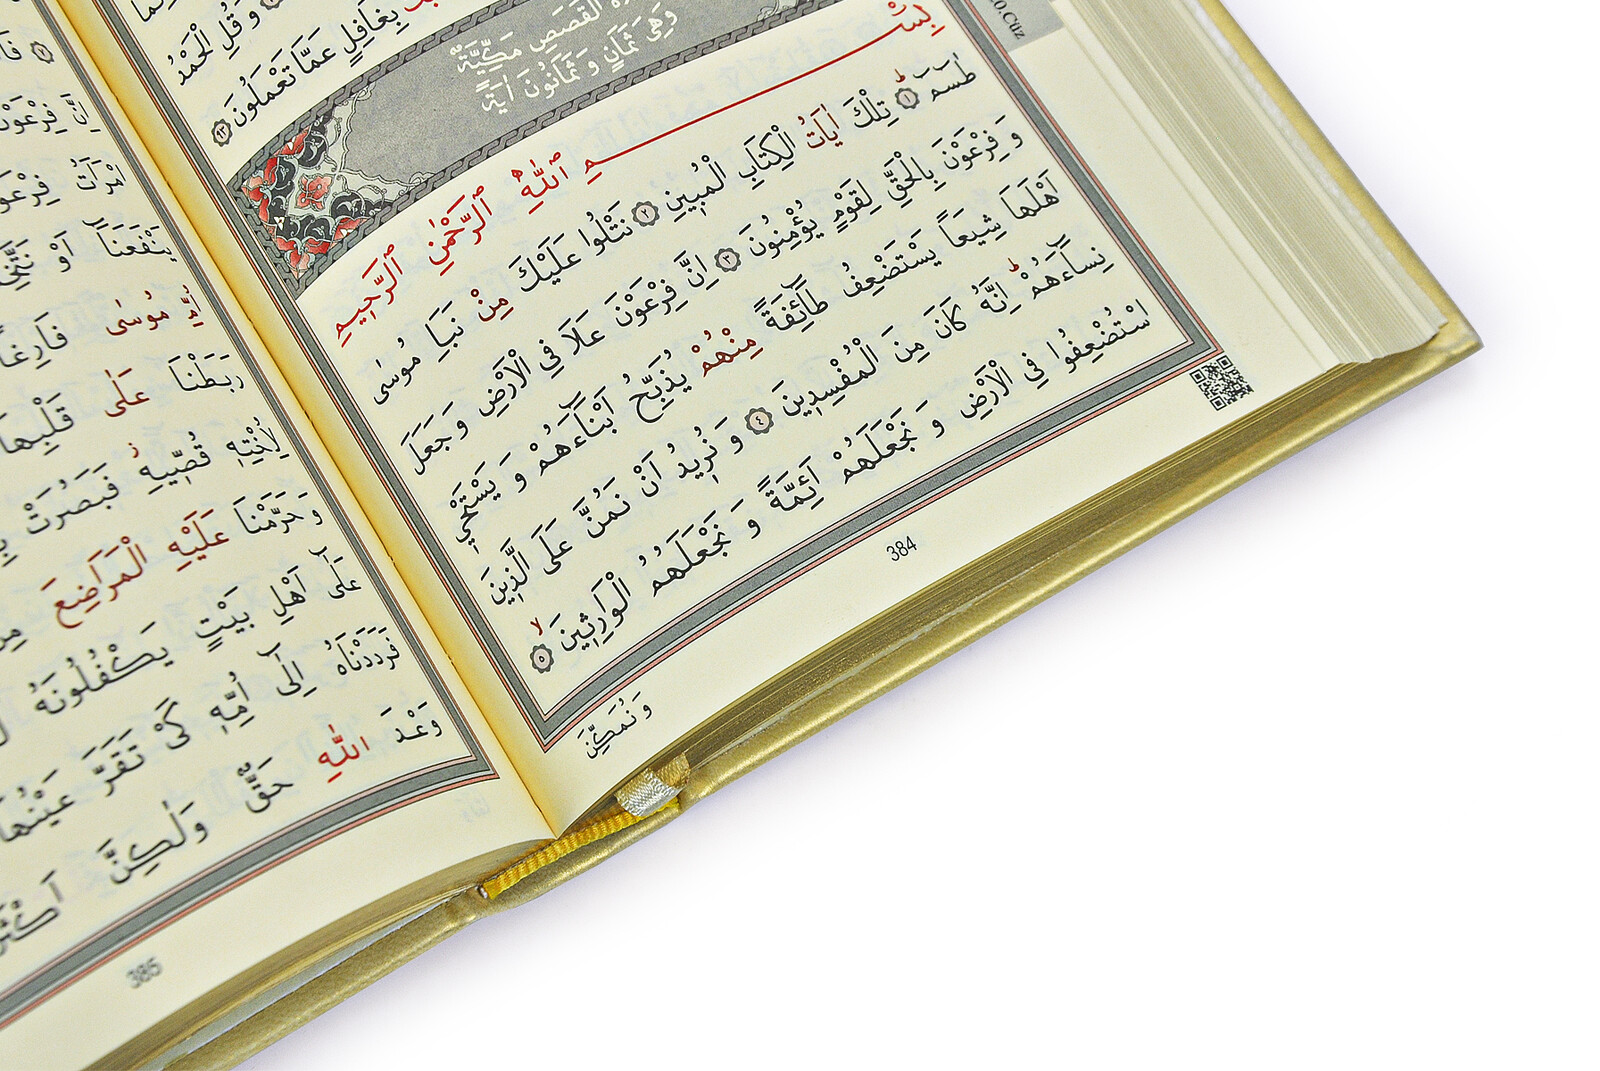 وَ قُلِ الْحَمْدُ
بِغَافِلٍ عَمَّا تَعْمَلُونَ ﴿٩٣﴾
الْقَصَصِ مَكِّيَّةٌ
وَهِيَ ثَمَانٍ وَ ثَمَانُونَ اٰيَةً
بِسْــمِ ٱللّٰهِ ٱلرَّحْمٰنِ ٱلرَّحِيمِ
طٰسٓمٓ ﴿١﴾ تِلْكَ اٰيَاتُ الْكِتَابِ الْمُبِينِ ﴿٢﴾ نَتْلُوا عَلَيْكَ مِنْ نَبَاِ مُوسٰى
وَ فِرْعَوْنَ بِالْحَقِّ لِقَوْمٍ يُؤْمِنُونَ ﴿٣﴾ اِنَّ فِرْعَوْنَ عَلَا فِي الْاَرْضِ وَ جَعَلَ
اَهْلَهَا شِيَعاً يَسْتَضْعِفُ طَٓائِفَةً مِنْهُمْ يُذَبِّحُ اَبْنَٓاءَهُمْ وَ يَسْتَحْيٖ
نِسَٓاءَهُمْ اِنَّهُ كَانَ مِنَ الْمُفْسِدِينَ ﴿٤﴾ وَ نُرِيدُ اَنْ نَمُنَّ عَلَى الَّذِينَ
اسْتُضْعِفُوا فِي الْاَرْضِ وَ نَجْعَلَهُمْ اَئِمَّةً وَ نَجْعَلَهُمُ الْوَارِثِينَ ﴿٥﴾
وَ نُمَكِّنَ
384
20.Cüz
اِنَّ فِرْعَوْنَ
امْرَاَتُ فِرْعَوْ
يَنْفَعَنَٓا اَوْ نَتَّخِ
اُمِّ مُوسٰى فَارِغاً
رَبَطْنَا عَلٰى قَلْبِهَا
لِاُخْتِهٖ قُصّٖيهِ فَبَصُرَتْ
وَ حَرَّمْنَا عَلَيْهِ الْمَرَاضِعَ
عَلٰٓى اَهْلِ بَيْتٍ يَكْفُلُونَهُ
فَرَدَدْنَاهُ اِلٰٓى اُمِّهٖ كَيْ تَقَرَّ عَيْنُهَا
وَعْدَ اللّٰهِ حَقٌّ وَلٰكِنَّ اَكْثَرَ
385